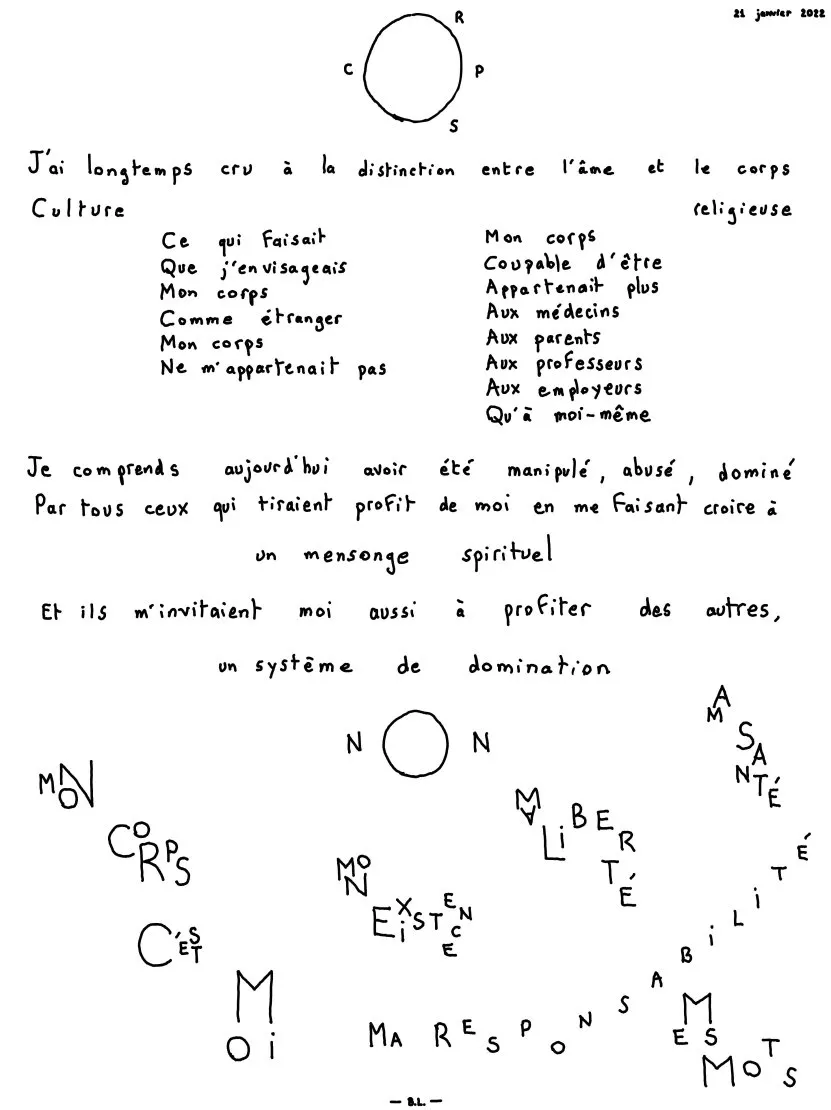 21 janvier 2022
C O R P S
J'ai longtemps cru à la distinction entre l'âme et le corps
Culture religieuse
Ce qui faisait
Que j'envisageais
Mon corps
Comme étranger
Mon corps
Ne m'appartenait pas
Mon corps
Coupable d'être
Appartenait plus
Aux médecins
Aux parents
Aux professeurs
Aux employeurs
Qu'à moi-même
Je comprends aujourd'hui avoir été manipulé, abusé, dominé
Par tous ceux qui tiraient profit de moi en me faisant croire à
un mensonge spirituel
Et ils m'invitaient moi aussi à profiter des autres,
un système de domination
N O N
MON
CORPS
C'EST
MOi
MON
EXiSTENCE
MA
LiBERTÉ
MA
SANTÉ
MA RESPONSABiLiTÉ
MES
MOTS
— B.L. —